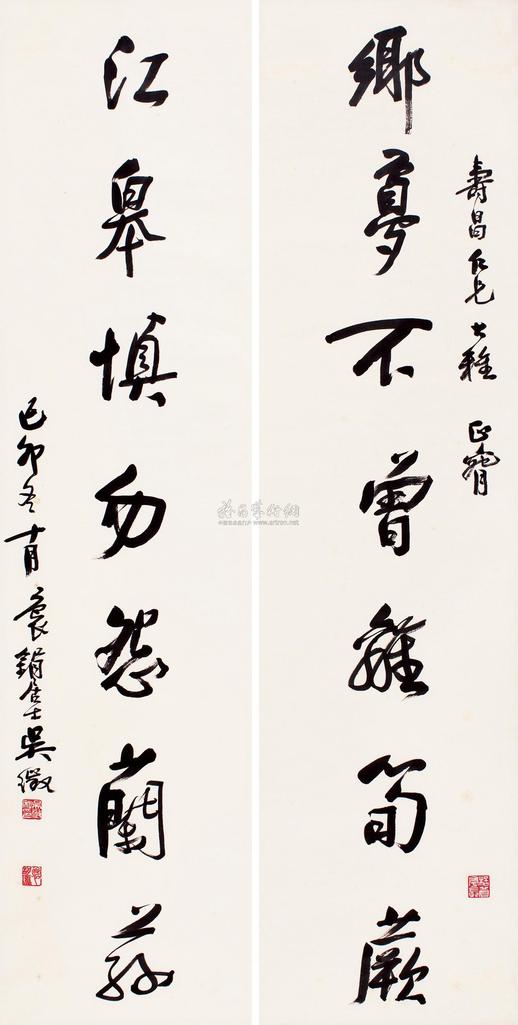 壽昌仁兄大雅 正臂
鄉夢不曾離筍蕨
江皋慎勿怨蘭蓀
己卯冬十月 褱鋗居士吳徵
www.artron.net